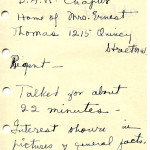 D.A.R. Chapter
Home of Mrs. Ernest
Thomas 1215 Quincy
Regent -
Talked for about
22 minutes -
Interest shown in
pictures & general facts.